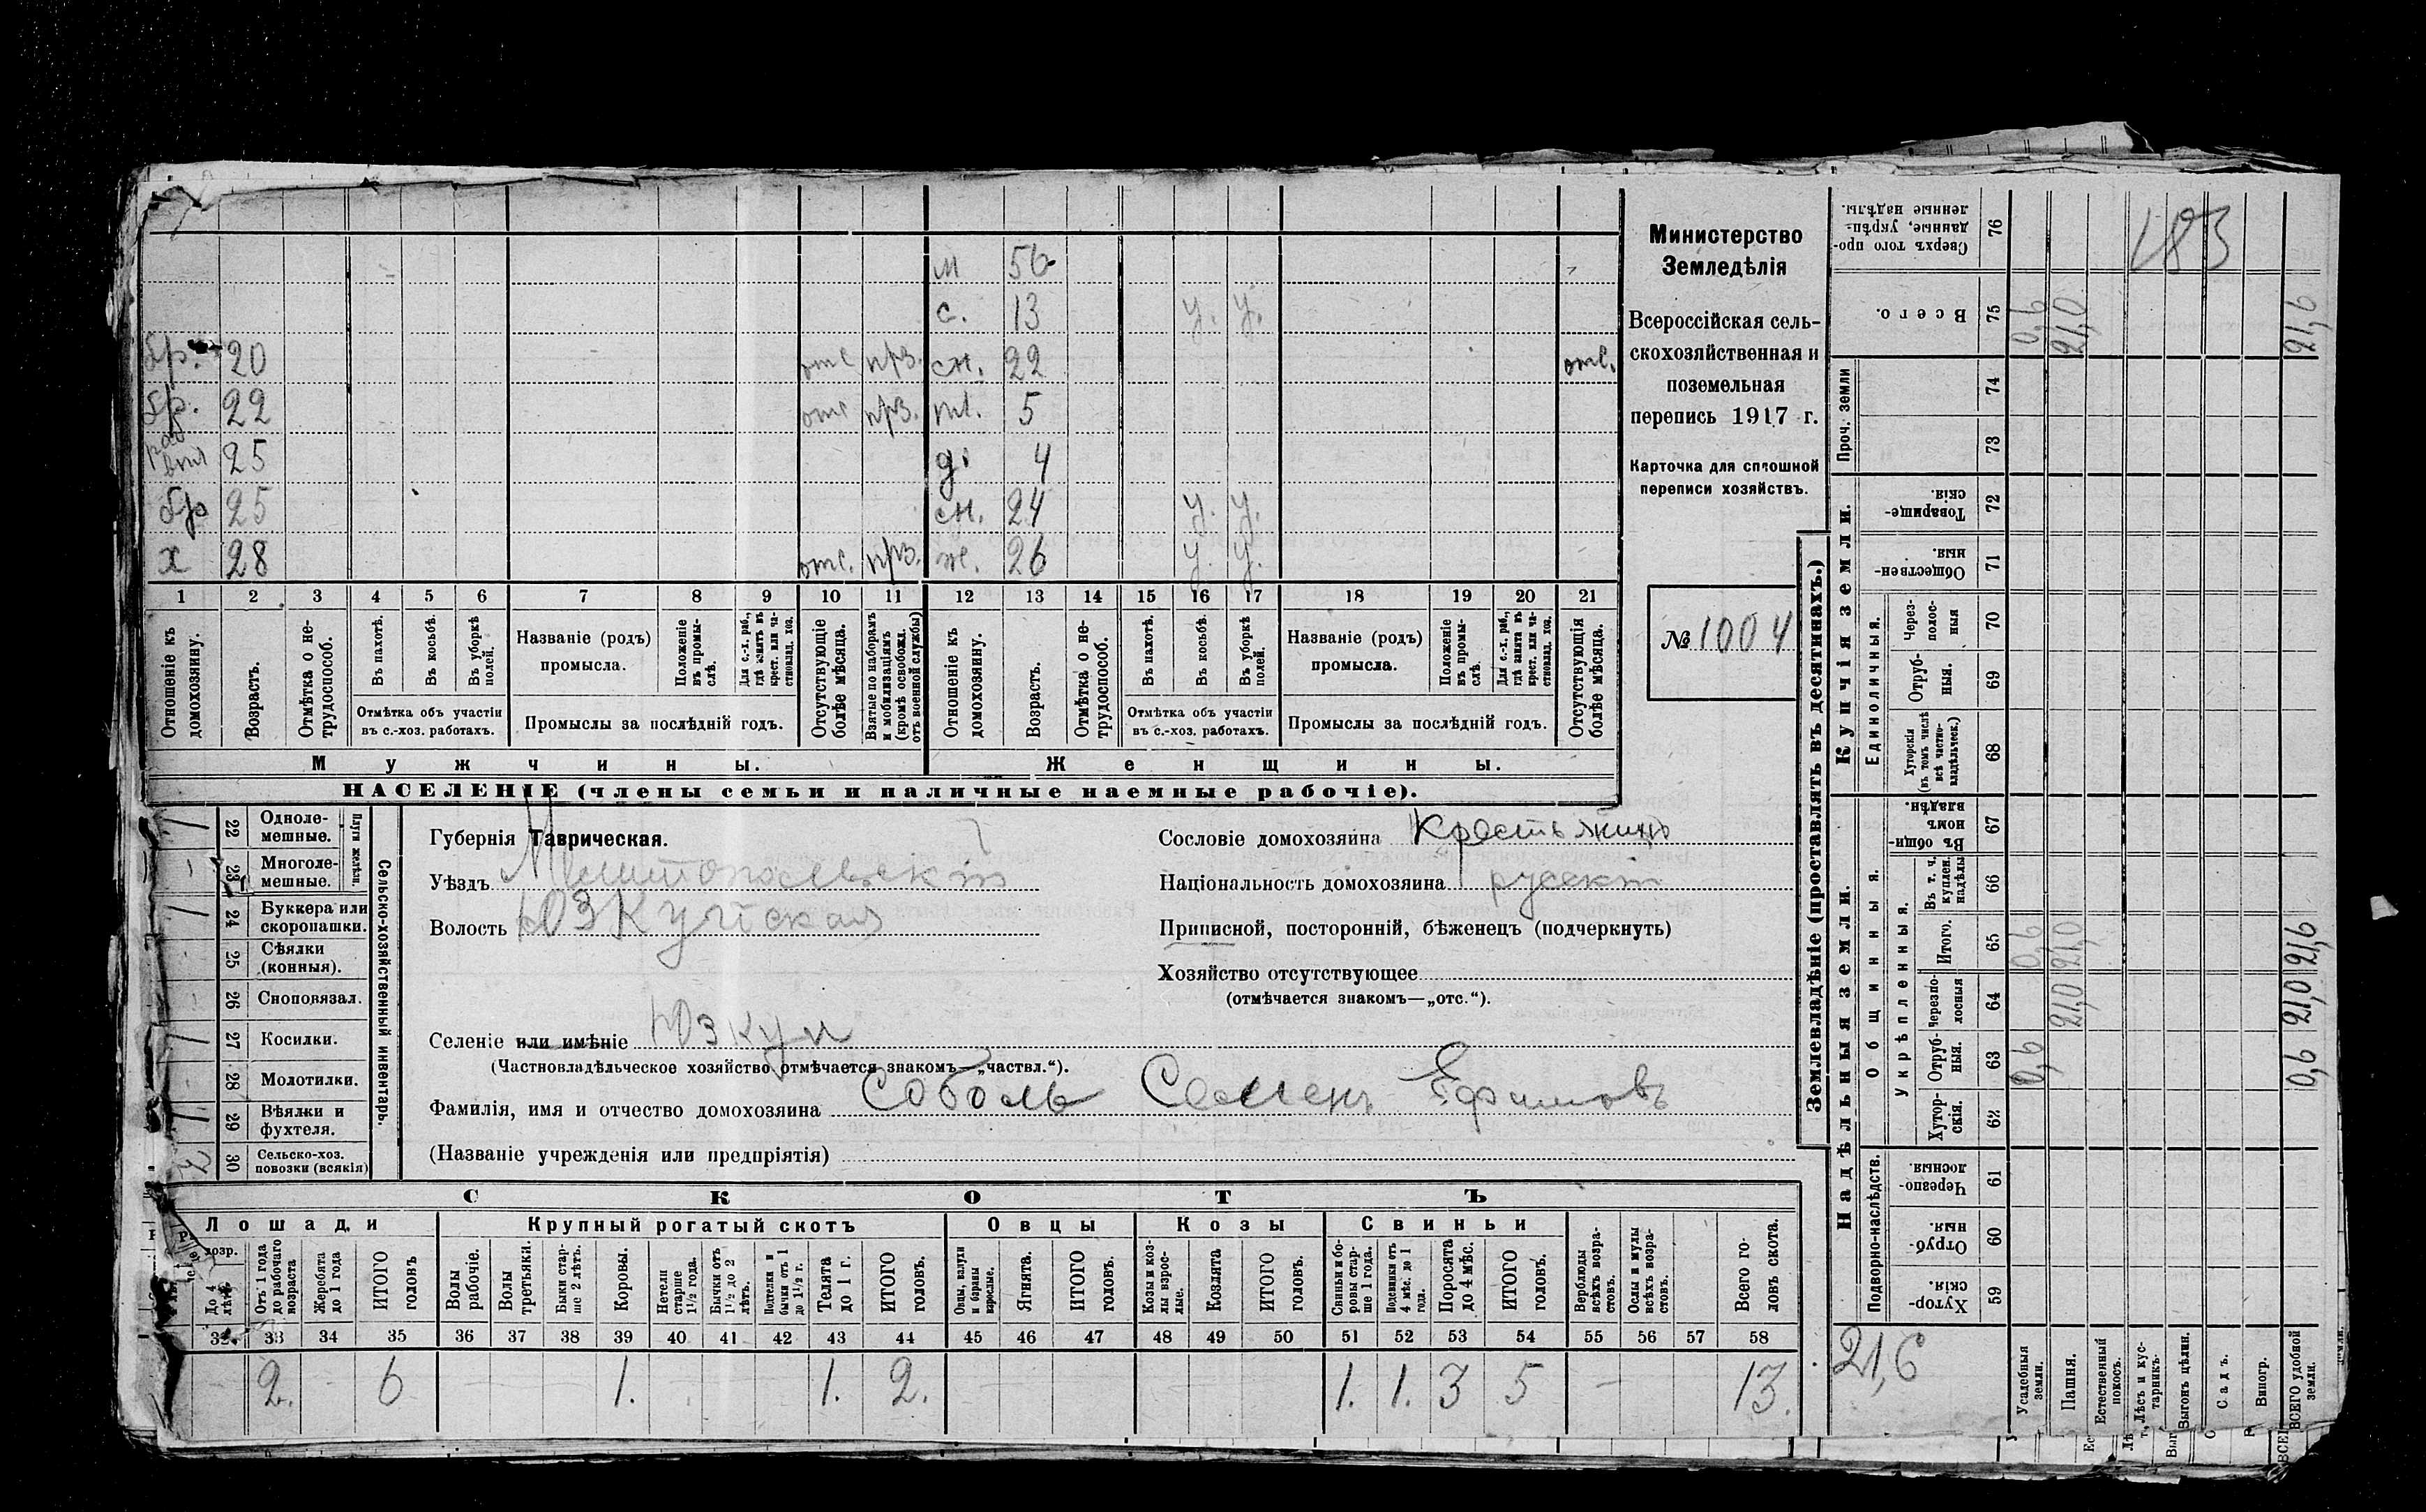 м 56
с. 13 у. у.
бр. 20 отс прз. сн. 22 отс.
бр. 22 отс прз. пл. 5
25 д. 4
бр 25 сн. 24 у. у.
х 28 отс. прз. ж. 26 у. у.
1 2 3 4 5 6 7 8 9 10 11 12 13 14 15 16 17 18 19 20 21
Отношеніе къ домохозяину.
Возрастъ.
Отмѣтка о нетрудоспособ.
Въ пахотѣ.
Въ косьбѣ.
Въ уборкѣ полей.
Отмѣтка объ участіи
въ с.-хоз. работахъ.
Названіе (родъ)
промысла.
Положеніе въ промыслѣ.
Для с.-х. раб., гдѣ занятъ въ крест. или частновлад. хоз.
Промыслы за послѣдній годъ.
Отсутствующіе болѣе мѣсяца.
Взятые по наборамъ и мобилизаціямъ (кромѣ освобожд. отъ военной службы)
Отношеніе къ домохозяину.
Возрастъ.
Отмѣтка о нетрудоспособ.
Въ пахотѣ.
Въ косьбѣ.
Въ уборкѣ полей.
Отмѣтка объ участіи
въ с.-хоз. работахъ.
Названіе (родъ)
промысла.
Положеніе въ промыслѣ.
Для с.-х. раб., гдѣ занята въ крест. или частновлад. хоз.
Промыслы за послѣдній годъ.
Отсутствующія болѣе мѣсяца.
Мужчины. Женщины.
НАСЕЛЕНІЕ (члены семьи и наличные наемные рабочіе).
Министерство
Земледѣлія
Всероссійская сель-
скохозяйственная и
поземельная
перепись 1917 г.
Карточка для сплошной
переписи хозяйствъ.
№ 1004
1 22 Одноле-
мешные.
Плуги желѣзн.
- 23 Многоле-
мешные.
1 24 Буккера или
скоропашки.
25 Сѣялки
(конныя).
26 Сноповязал.
1 27 Косилки.
28 Молотилки.
1 29 Вѣялки и
фухтеля.
2 30 Сельско-хоз.
повозки (всякія)
Сельско-хозяйственный инвентарь.
Губернія Таврическая.
Уѣздъ Мелитопольскій
Волость Юзкуйская
Селеніе или имѣніе Юзкуи
(Частновладѣльческое хозяйство отмѣчается знакомъ—„частвл.“).
Фамилія, имя и отчество домохозяина Соболь Семенъ Ефимовъ
(Названіе учрежденія или предпріятія)
Сословіе домохозяина Крестьянинъ
Національность домохозяина русскій
Приписной, посторонній, бѣженецъ (подчеркнуть)
Хозяйство отсутствующее
(отмѣчается знакомъ—„отс.“).
СКОТЪ
Лошади Крупный рогатый скотъ Овцы Козы Свиньи
До 4 лѣтъ
Отъ 1 года до рабочаго возраста
Жеребята до 1 года
ИТОГО головъ
Волы рабочіе.
Волы третьяки.
Быки старше 2 лѣтъ.
Коровы.
Нетели старше 1½ года.
Бычки отъ 1½ до 2 лѣтъ.
Подтелки и бычки отъ 1 до 1½ г.
Телята до 1 г.
ИТОГО головъ.
Овцы, валухи и бараны взрослые.
Ягнята.
ИТОГО головъ.
Козы и козлы взрослые.
Козлята
ИТОГО головъ.
Свиньи и боровы старше 1 года.
Подсвинки отъ 4 мѣс. до 1 года.
Поросята до 4 мѣс.
ИТОГО головъ.
Верблюды всѣхъ возрастовъ.
Ослы и мулы всѣхъ возрастовъ.
Всего головъ скота.
32 33 34 35 36 37 38 39 40 41 42 43 44 45 46 47 48 49 50 51 52 53 54 55 56 57 58
2. 6 1. 1. 2. 1. 1. 3 5 - 13.
Землевладѣніе (проставлять въ десятинахъ.)
Сверхъ того проданные, укрѣпленные надѣлы. 76 183
Всего. 75 0,6 21,0 21,6
Проч. земли
74
73
Купчія земли.
Товарищескія. 72
Общественныя. 71
Единоличныя.
Черезполосныя 70
Отрубныя. 69
Хуторскія (въ томъ числѣ всѣ частновладѣльческ.) 68
Надѣльныя земли.
Общинныя.
Въ общинномъ владѣн. 67
Укрѣпленныя.
Въ т. ч. куплен. надѣлы 66
Итого. 65 0,6 21,0 21,6
Черезполосныя 64 21,0 21,0
Отрубныя. 63 0,6 0,6
Хуторскія. 62
Подворно-наслѣдств.
Черезполосныя. 61
Отрубныя. 60
Хуторскія 59
21,6
Усадебныя земли.
Пашня.
Естественный покосъ.
Лѣсъ и кустарникъ.
Выгонъ цѣлин.
Садъ.
Виногр.
ВСЕГО удобной земли.